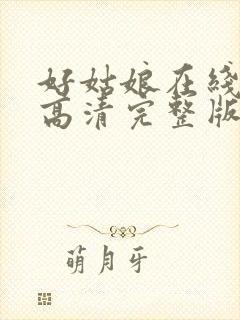 好姑娘在线
高清完整版
萌月牙